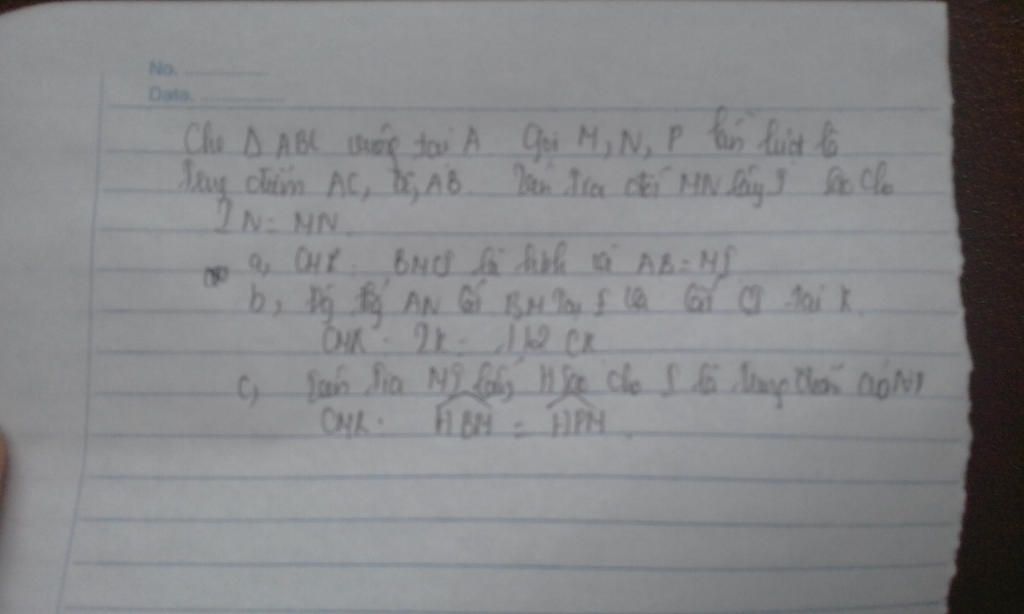 No. ............
Date. ............
Cho Δ ABC vuông tại A Gọi M, N, P lần lượt là
trung điểm AC, BC, AB. Trên tia đối MN lấy sao cho
IN = MN
a, CMR: BMCI là hình và AB = MI
b, AN cắt BM tại và cắt CI tại K.
CMR: IK = 1/2 CK
c, Trên tia lấy H sao cho là trung điểm
CMR: HBM = HPM